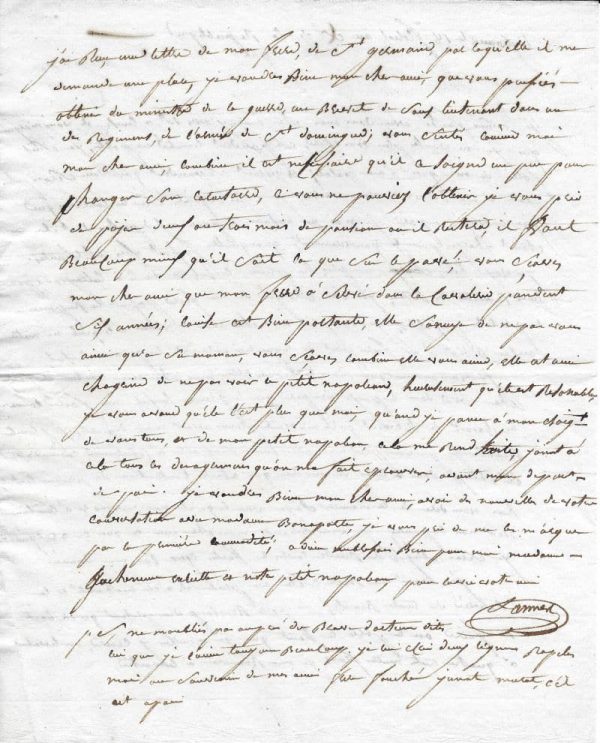 j'ai Reçu une lettre de mon frere, de St germain, par laquelle il me
demande une place, je voudrés Bien mon cher ami, que vous puissiés
obtenir du ministre de la guerre, un Brevet de Sous lieutenant dans un
des Regimens, de l'armée de St domingue; vous Sentés comme moi
mon cher ami, combien il est nessesaire qu'il S'éloigne un peu pour
changer Son caractere, Si vous ne pouviés l'obtenir je vous prie
de payer deux ou trois mois de pansion ou il Restera, il Vaut
Beaucoup mieux qu'il Soit la que Sur le pavé, vous Savés
mon cher ami que mon frere à Servi dans la Cavalerie pandent
Six années; louise est Bien portante, elle S'enuye de ne pas vous
ainsi qu'a Sa maman, vous Savés combien elle vous aime, elle est aussi
chagrine de ne pas voir le petit napoleon, hureusement qu'elle est Résonables
je vous avoue qu'elle l'est plus que moi, quand je panse à mon éloigt
de vous tous, et de mon petit napoleon cela me Rend triste joint à
cela tous les desagremens qu'on ma fait éprouver, avant mon depart
de paris. je voudrés Bien mon cher ami, avoir de nouvelles de votre
conversation avec madame Bonaparte, je vous prie de me les marquer
par la premiere commodité; adieu mille fois Bien pour moi madame
et notre petit napoleon, pour la vie votre ami
Lannes
p. S. ne moubliés pas auprés de Beau dites
lui que je l'aime toujour Beaucoup, je lui écrirai deux lignes Rapelés
moi au Souvenir de mes amis fouché junot murat, S'il
est a paris